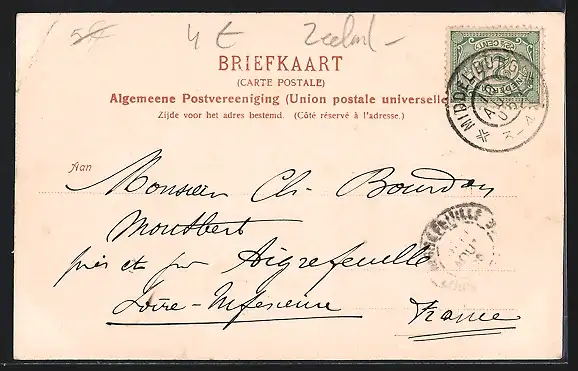 4 € Zeeland -
BRIEFKAART
(CARTE POSTALE)
Algemeene Postvereeniging (Union postale universelle)
Zijde voor het adres bestemd. (Côté réservé à l'adresse.)
MIDDELBURG
Aan
Monsieur Ch. Bourdon
Montbert
près et par Aigrefeuille
Loire-Inférieure France